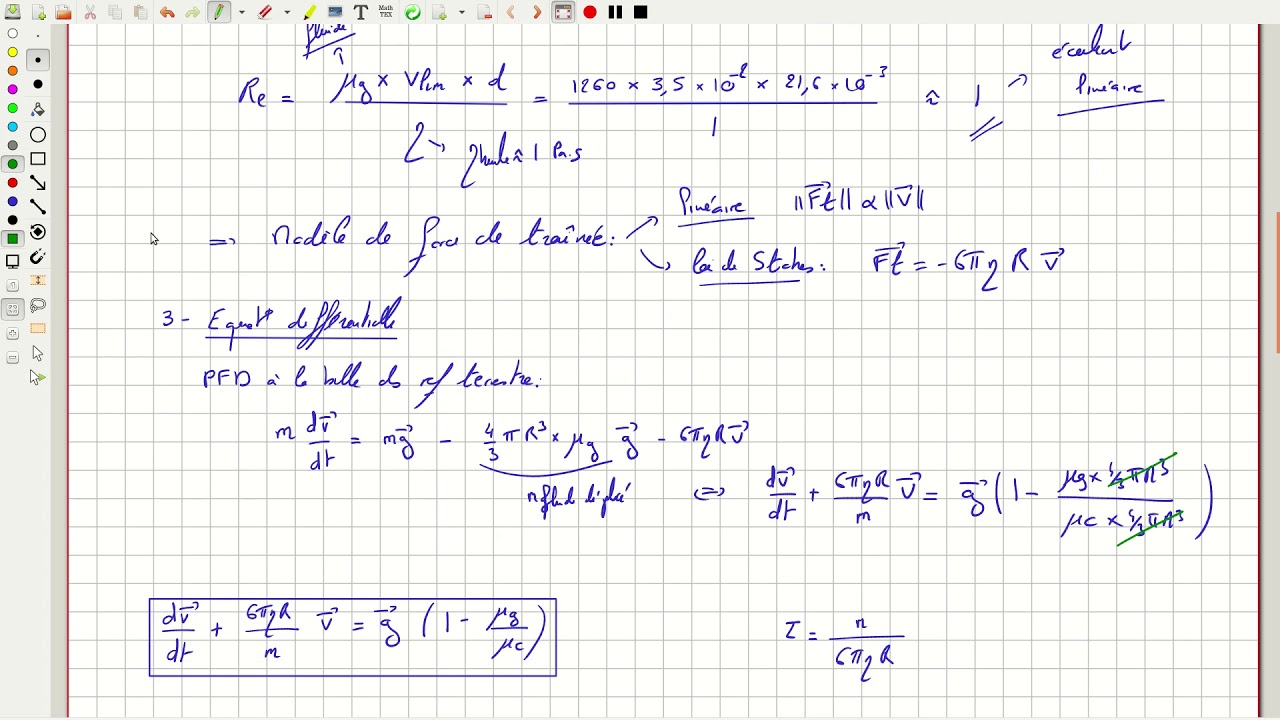 Math
TEX
T
fluide
Re = μg × Vlim × d / η = 1260 × 3,5 × 10⁻² × 21,6 × 10⁻³ / 1 ≈ 1 → écoulement linéaire
η huile ≈ 1 Pa.s
⇒ Modèle de force de traînée : linéaire ||F⃗t|| α ||v⃗||
loi de Stokes : F⃗t = -6πηR v⃗
3 - Equat° différentielle
PFD à la balle ds ref terrestre :
m dv⃗/dt = mg⃗ - 4/3 πR³ × μg g⃗ - 6πηRv⃗
m fluide déplacé
⇔ dv⃗/dt + 6πηR/m v⃗ = g⃗ (1 - μg × 4/3 πR³ / μc × 4/3 πR³)
dv⃗/dt + 6πηR/m v⃗ = g⃗ (1 - μg/μc)
τ = m / 6πηR